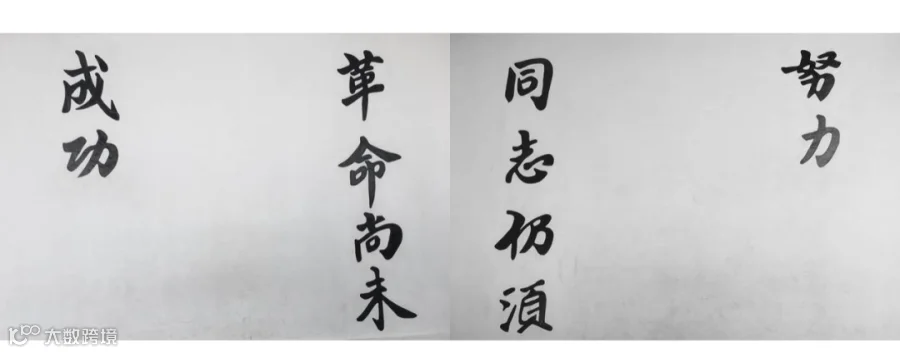 革命尚未
成功
同志仍須
努力
大数跨境